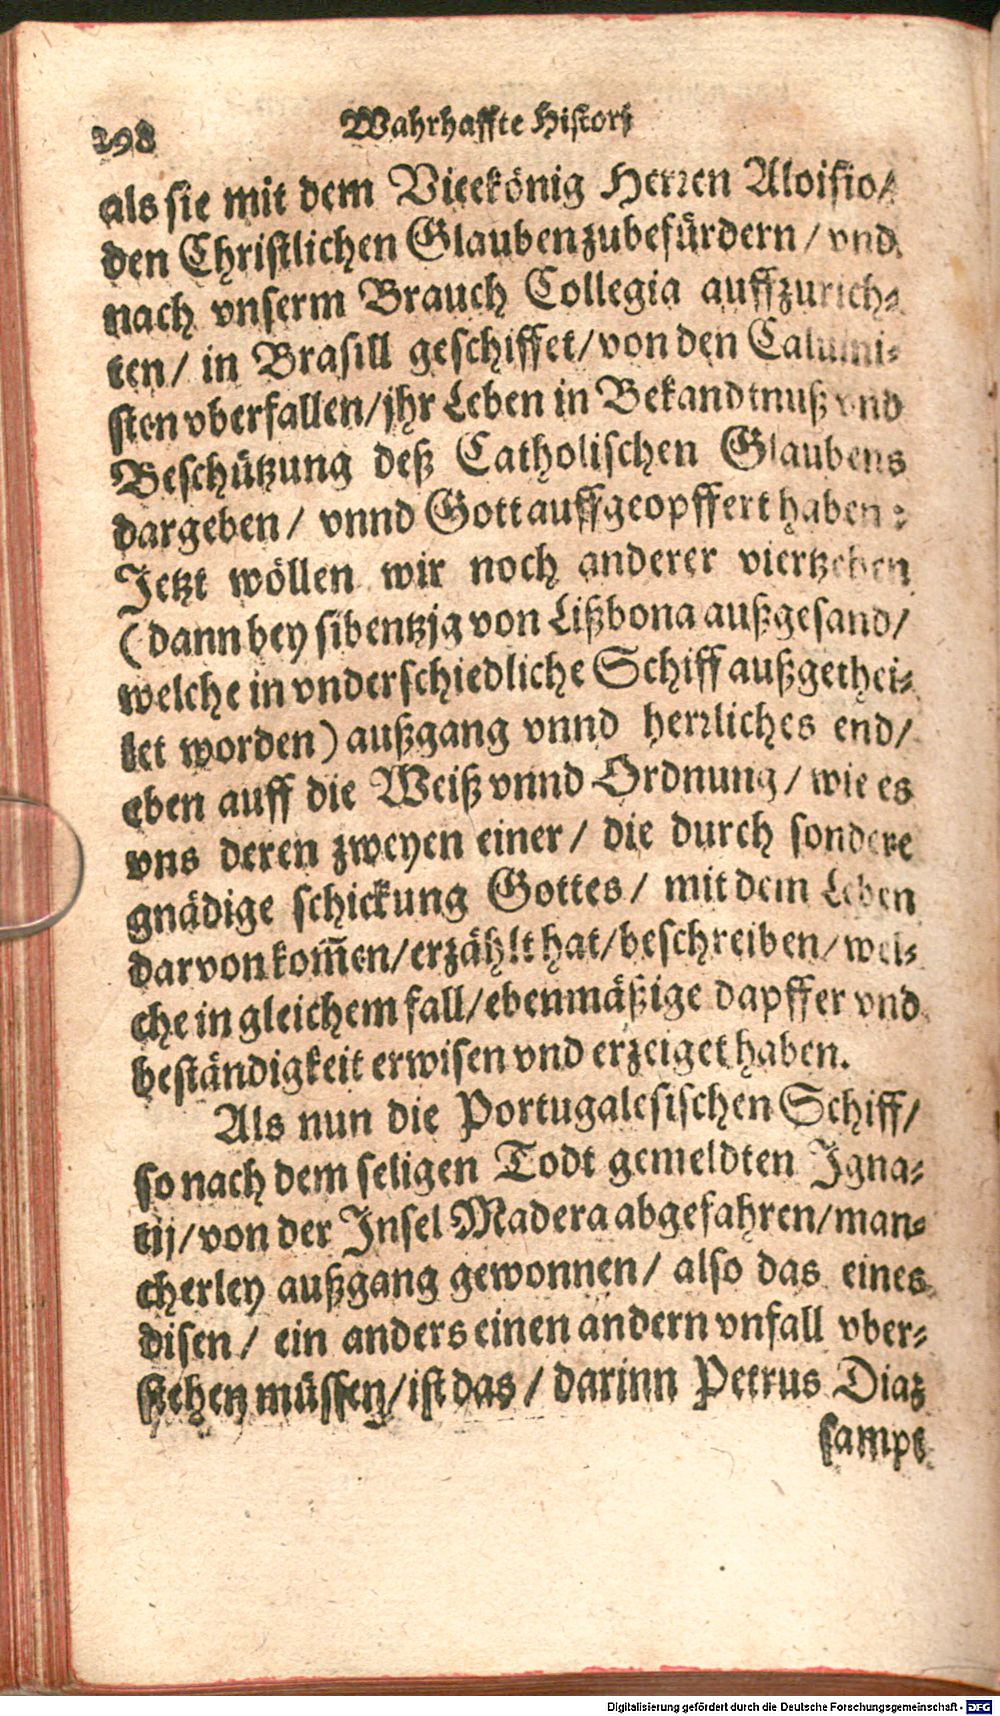 198 Wahrhaffte Histori
als sie mit dem Vicekönig Herren Aloisio/
den Christlichen Glauben zubefürdern / vnd
nach vnserm Brauch Collegia auffzurich⸗
ten / in Brasill geschiffet / von den Caluini⸗
sten vberfallen / jhr Leben in Bekandtnuß vnd
Beschützung deß Catholischen Glaubens
dargeben / vnnd Gott auffgeopffert haben:
Jetzt wöllen wir noch anderer viertzehen
(dann bey sibentzig von Lißbona außgesand /
welche in vnderschiedliche Schiff außgethei⸗
let worden) außgang vnnd herrliches end /
eben auff die Weiß vnnd Ordnung / wie es
vns deren zweyen einer / die durch sondere
gnädige schickung Gottes / mit dem Leben
darvon kom̃en / erzählt hat / beschreiben / wel⸗
che in gleichem fall / ebenmäßige dapffer vnd
beständigkeit erwisen vnd erzeiget haben.
Als nun die Portugalesischen Schiff /
so nach dem seligen Todt gemeldten Igna⸗
tij / von der Insel Madera abgefahren / man⸗
cherley außgang gewonnen / also das eines
disen / ein anders einen andern vnfall vber⸗
stehen müssen / ist das / darinn Petrus Diaz
sampt
Digitalisierung gefördert durch die Deutsche Forschungsgemeinschaft - DFG